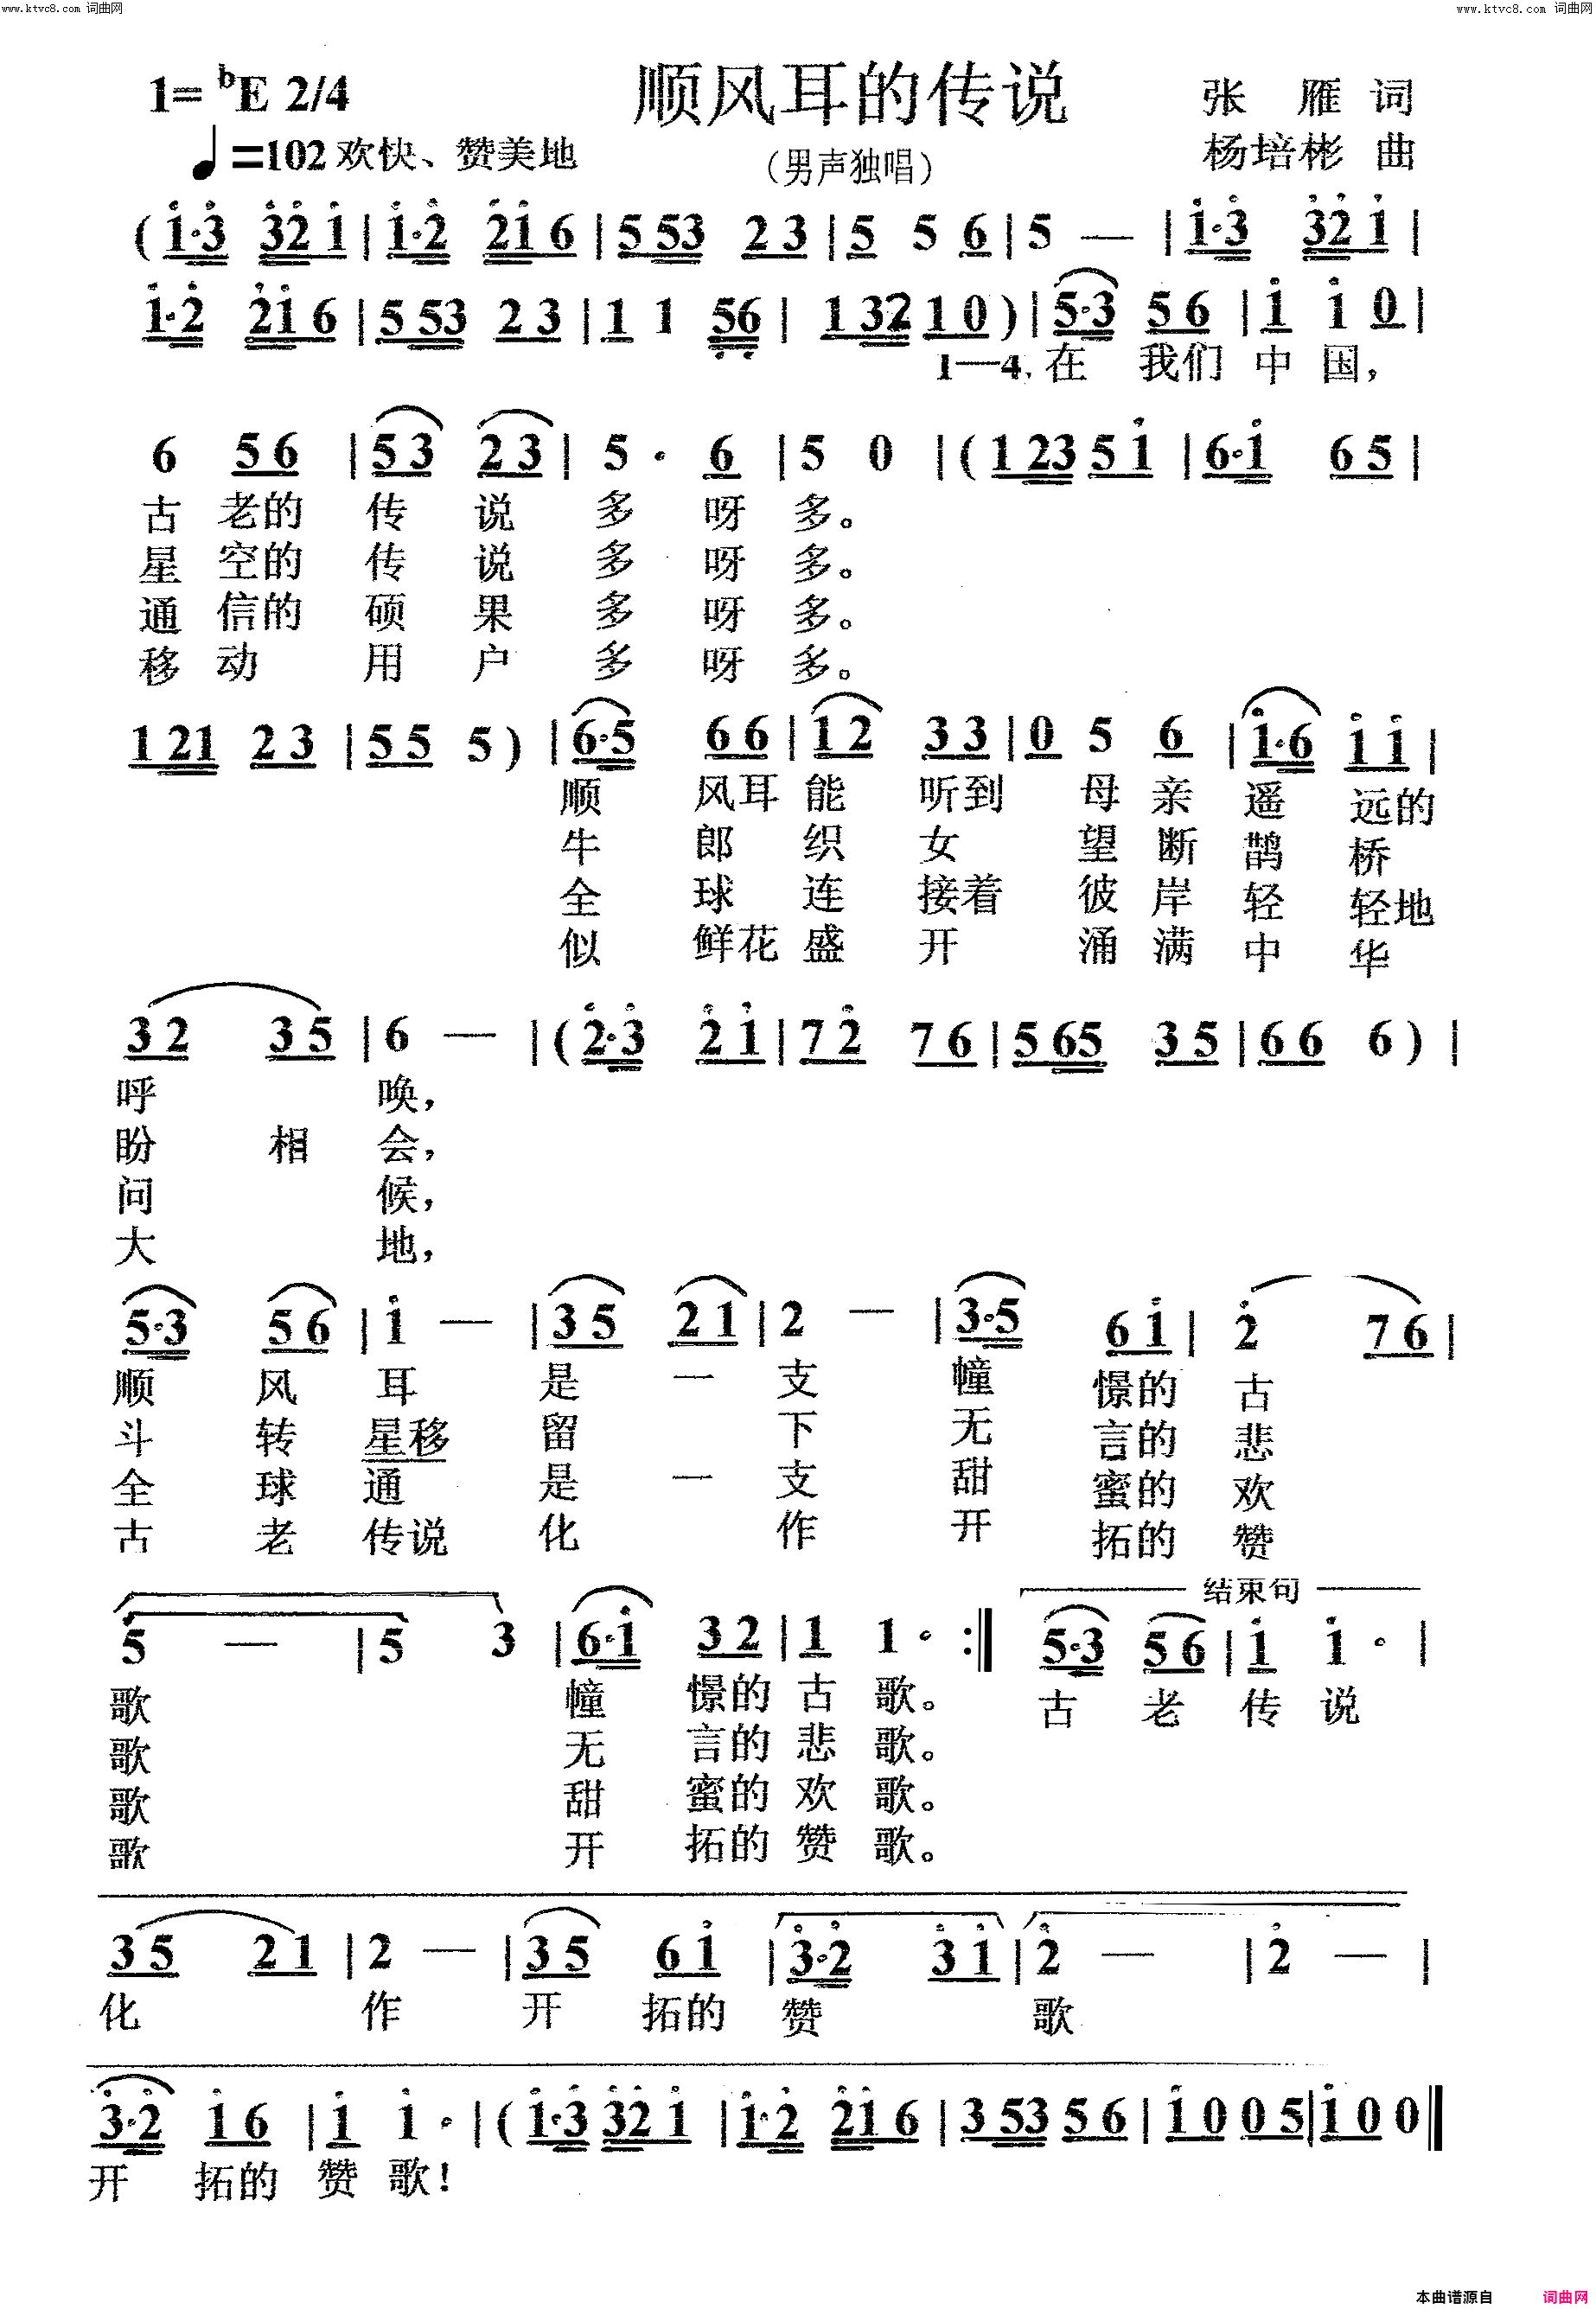 www.ktvc8.com 词曲网
www.ktvc8.com 词曲网
1= ♭E 2/4
顺风耳的传说
张 雁 词
♩=102 欢快、赞美地
(男声独唱)
杨培彬 曲
( i·3 32 i | i·2 2i 6 | 5 53 2 3 | 5 5 6 | 5 — | i·3 32 i |
i·2 2i 6 | 5 53 2 3 | 1 1 56 | 1 32 1 0 ) | 5·3 5 6 | i i 0 |
1—4. 在 我们 中 国，
6 5 6 | 5 3 2 3 | 5 · 6 | 5 0 | ( 1 23 5 i | 6·i 6 5 |
古 老的 传 说 多 呀 多。
星 空的 传 说 多 呀 多。
通 信的 硕 果 多 呀 多。
移 动 用 户 多 呀 多。
1 21 2 3 | 5 5 5 ) | 6·5 6 6 | 1 2 3 3 | 0 5 6 | i·6 i i |
顺 风耳 能 听到 母 亲 遥 远的
牛 郎 织 女 望 断 鹊 桥
全 球 连 接着 彼 岸 轻 轻地
似 鲜花 盛 开 涌 满 中 华
3 2 3 5 | 6 — | ( 2·3 2 i | 7 2 7 6 | 5 65 3 5 | 6 6 6 ) |
呼 唤，
盼 相 会，
问 候，
大 地，
5·3 5 6 | i — | 3 5 2 1 | 2 — | 3·5 6 i | 2 7 6 |
顺 风 耳 是 一 支 憧 憬的 古
斗 转 星移 留 下 无 言的 悲
全 球 通 是 一 支 甜 蜜的 欢
古 老 传说 化 作 开 拓的 赞
结束句
5 — | 5 3 | 6·i 3 2 | 1 1 · :‖ 5·3 5 6 | i i · |
歌 憧 憬的 古 歌。 古 老 传 说
歌 无 言的 悲 歌。
歌 甜 蜜的 欢 歌。
歌 开 拓的 赞 歌。
3 5 2 1 | 2 — | 3 5 6 i | 3·2 3 i | 2 — | 2 — |
化 作 开 拓的 赞 歌
3·2 i 6 | i i · | ( i·3 32 i | i·2 2i 6 | 3 53 5 6 | i 0 0 5 | i 0 0 ‖
开 拓的 赞 歌！
本曲谱源自 词曲网